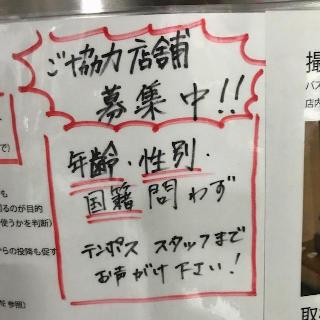 ご協力店舗
募集中!!
年齢・性別・
国籍問わず
テンポス スタッフまで
お声がけ下さい!
で)
も
るのが目的
使うかを判断)
らの投降も促す
参照)
撮
バス
店内
取